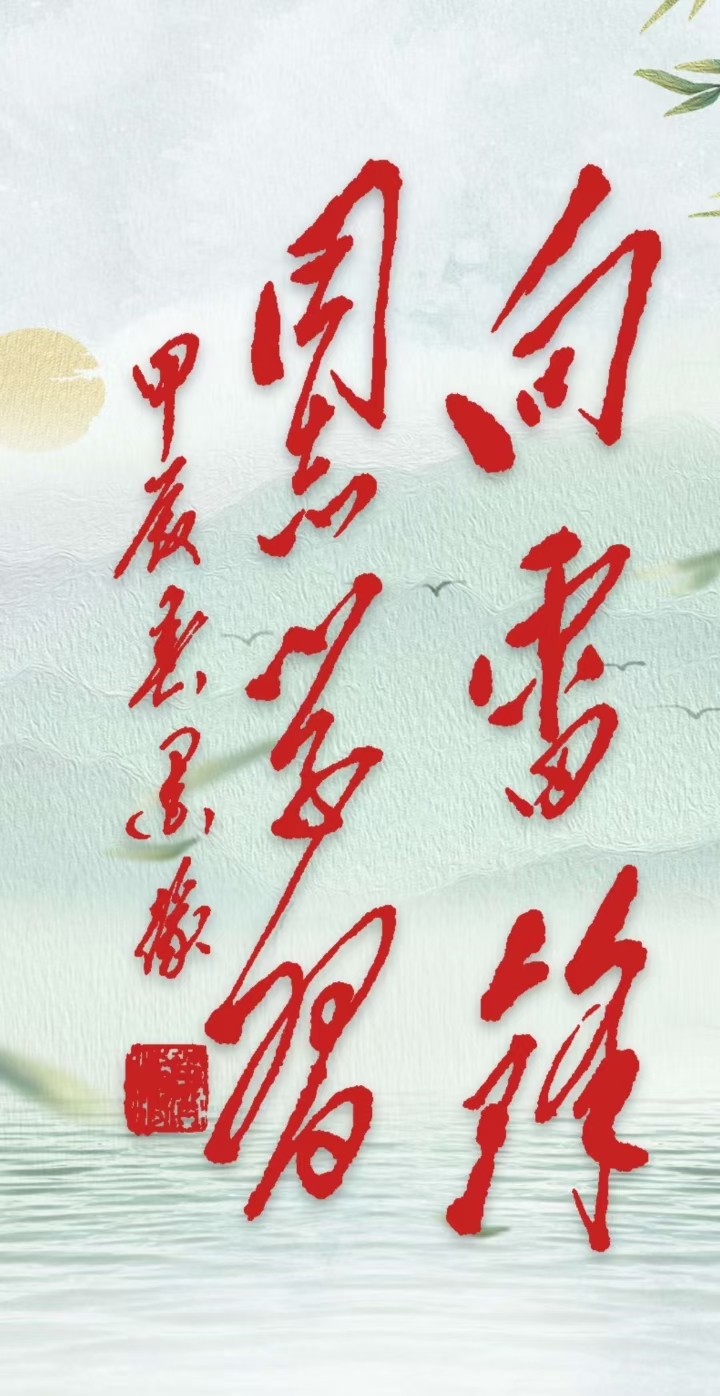 向雷锋
同志学习
甲辰春墨缘